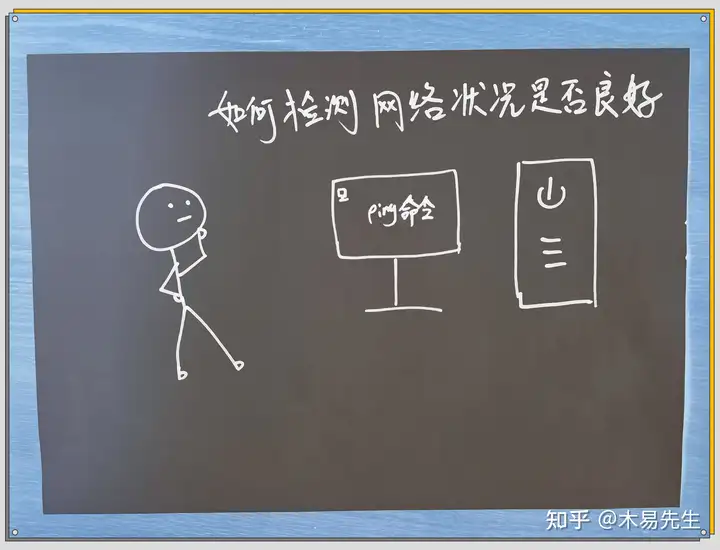 如何检测网络状况是否良好
ping命令
知乎 @木易先生